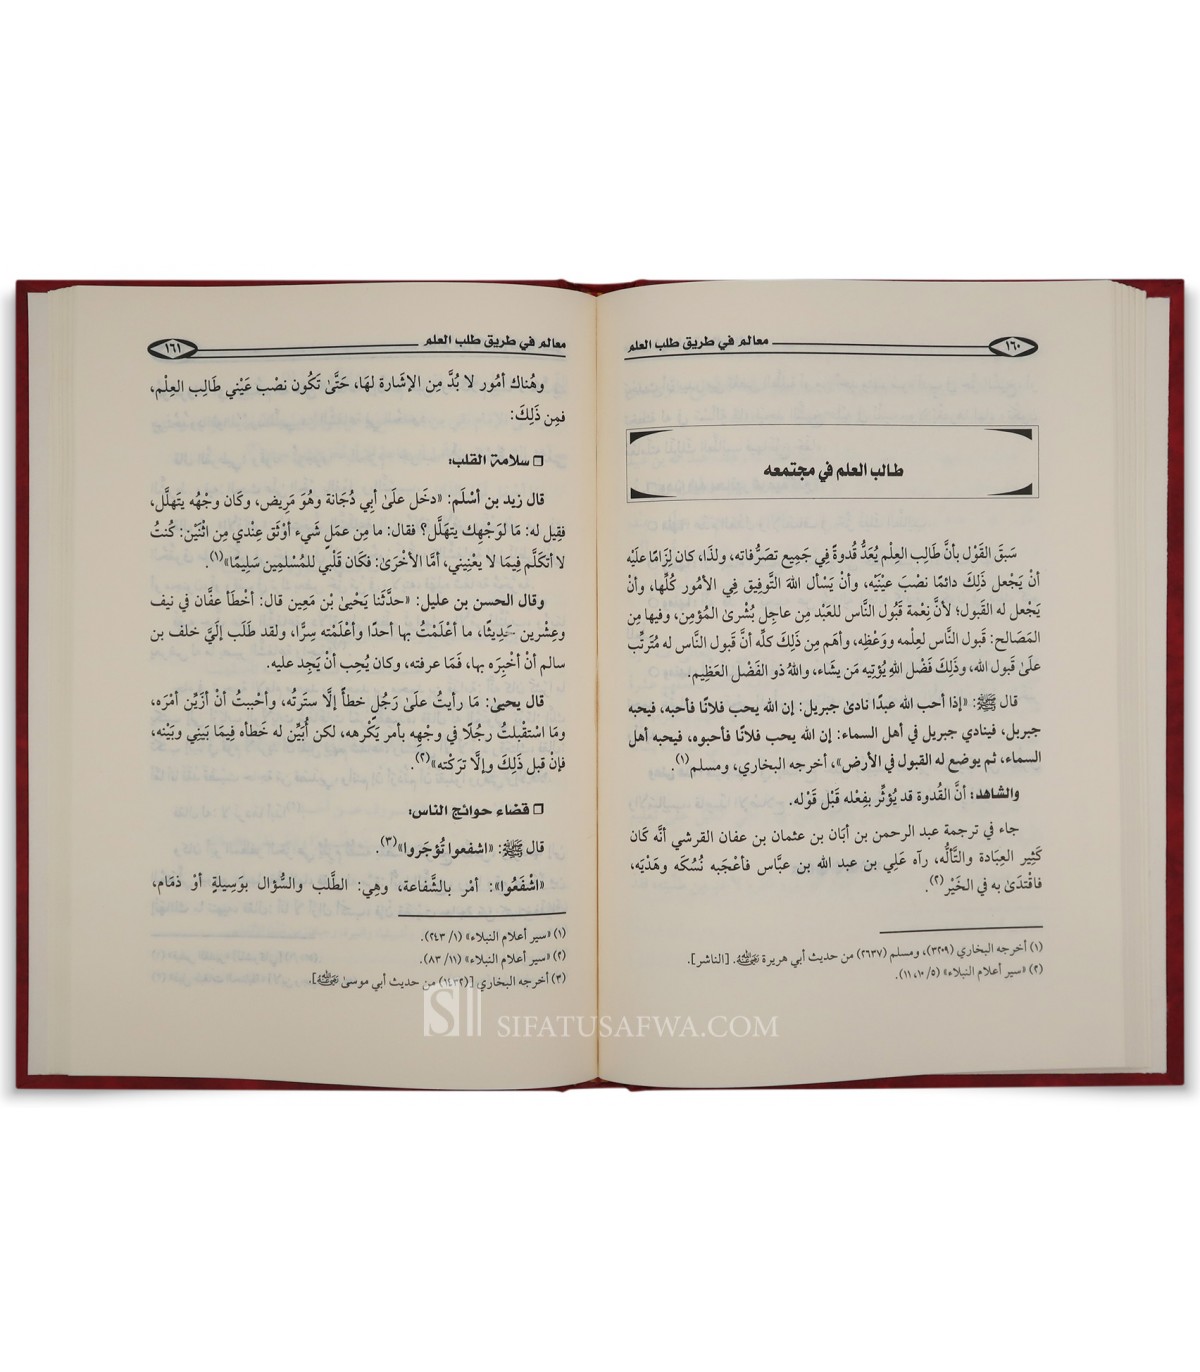 ١٦٠ معالم في طريق طلب العلم
طالب العلم في مجتمعه
سَبَق القَوْل بأنَّ طَالِب العِلْم يُعَدُّ قُدوةً فِي جَمِيع تصَرُّفاته، ولذَا، كان لِزَامًا علَيْه
أنْ يَجْعل ذَلِكَ دائمًا نصْبَ عيْنَيْه، وأنْ يَسْأل اللهَ التَّوفيق فِي الأمُور كُلِّها، وأنْ
يَجْعل له القَبول؛ لأنَّ نِعْمة قَبُول النَّاس للعَبْد مِن عاجِل بُشْرىٰ المُؤمِن، وفيها مِن
المَصَالح: قَبول النَّاس لعِلْمه ووَعْظِه، وأهَم مِن ذَلِكَ كلِّه أنَّ قَبول النَّاس له مُتَرتِّب
علَىٰ قَبول الله، وذَلِكَ فَضْل اللهِ يُؤتِيه مَن يشَاء، واللهُ ذو الفَضْل العَظِيم.
قال ﷺ: «إذا أحب الله عبدًا نادىٰ جبريل: إن الله يحب فلانًا فأحبه، فيحبه
جبريل، فينادي جبريل في أهل السماء: إن الله يحب فلانًا فأحبوه، فيحبه أهل
السماء، ثم يوضع له القبول في الأرض»، أخرجه البخاري، ومسلم(١).
والشاهد: أنَّ القُدوة قد يُؤثِّر بفِعْله قَبْل قَوْله.
جاء في ترجمة عبد الرحمن بن أبَان بن عثمان بن عفان القرشي أنَّه كَان
كَثِير العِبَادة والتَّألُّه، رآه عَلِي بن عبد الله بن عبَّاس فأعْجَبه نُسُكَه وهَدْيَه،
فاقْتدَىٰ به في الخَيْر(٢).
(١) أخرجه البخاري (٣٢٠٩)، ومسلم (٢٦٣٧) من حديث أبي هريرة رضي الله عنه. [الناشر].
(٢) «سير أعلام النبلاء» (٥/ ١٠، ١١).
معالم في طريق طلب العلم ١٦١
وهُناك أمُور لا بُدَّ مِن الإشَارة لهَا، حَتَّىٰ تَكُون نصْب عَيْني طَالِب العِلْم،
فمِن ذَلِكَ:
❒ سلامة القلب:
قال زيد بن أسْلَم: «دخَل علَىٰ أبِي دُجَانة وهُوَ مَرِيض، وكَان وجْهُه يتَهلَّل،
فقِيل له: مَا لوَجْهِك يتهَلَّل؟ فقال: ما مِن عمَلِ شَيء أوْثَق عِنْدِي مِن اثْنَيْن: كُنتُ
لا أتكَلَّم فِيمَا لا يَعْنِيني، أمَّا الأخْرَىٰ: فكَان قَلْبي للمُسْلمِين سَلِيمًا»(١).
وقال الحسن بن عليل: «حدَّثَنا يَحْيىٰ بْن مَعِين قال: أخْطَأ عفَّان في نيف
وعِشْرين حَدِيثًا، ما أعْلَمْتُ بها أحدًا وأعْلَمْته سِرًّا، ولقد طَلَب إليَّ خلف بن
سالم أنْ أخْبِرَه بها، فَمَا عرفته، وكان يُحِب أنْ يَجِد عليه.
قال يحيىٰ: مَا رأيتُ علَىٰ رَجُلٍ خطأً إلَّا سترتُه، وأحْببتُ أنْ أزَيِّن أمْرَه،
ومَا اسْتقبلتُ رجُلًا في وجْهِه بأمر يَكْرهه، لكن أُبَيِّن له خَطأه فِيمَا بَيْنِي وبَيْنه،
فإنْ قبل ذَلِكَ وإلَّا ترَكْته»(٢).
❒ قضاء حوائج الناس:
قال ﷺ: «اشفعوا تُؤجَروا»(٣).
«اشْفَعُوا»: أمْر بالشَّفاعة، وهِي: الطَّلب والسُّؤال بوَسِيلةٍ أوْ ذمَام،
(١) «سير أعلام النبلاء» (١/ ٢٤٣).
(٢) «سير أعلام النبلاء» (١١/ ٨٣).
(٣) أخرجه البخاري [(١٤٣٢) من حديث أبي موسىٰ رضي الله عنه].
SIFATUSAFWA.COM